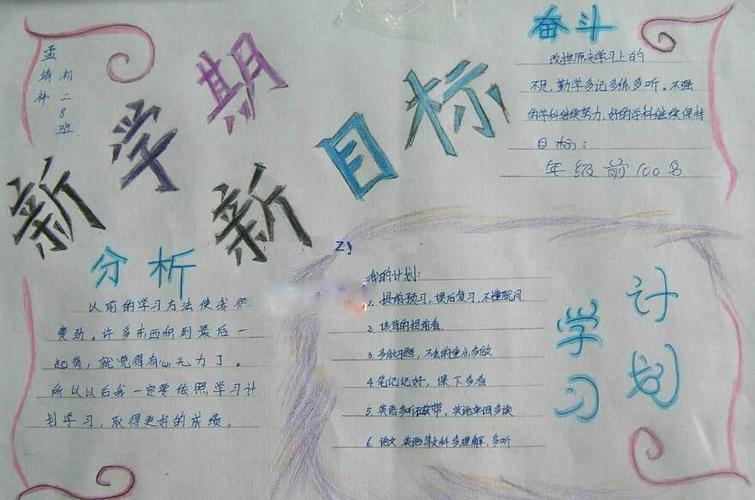 新学期
新目标
孟
初二8班
奋斗
改掉原来学习上的
不足，勤学多记多练多听。不强
的学科继续努力，好的学科继续保持
目标：
年级前100名
分析
以前的学习方法使我很
费劲。许多东西积到最后一
起背，就觉得有心无力了。
所以以后我一定要依照学习计
划学习，取得更好的成绩。
学习
计划
我的计划：
1. 提前预习，课后复习，不懂就问
2. 该背的提前看
3. 多做习题，不会的重点多做
4. 笔记记好，课下多看
5. 英语多听磁带，英语单词多读
6. 语文 英语等文科多理解，多听